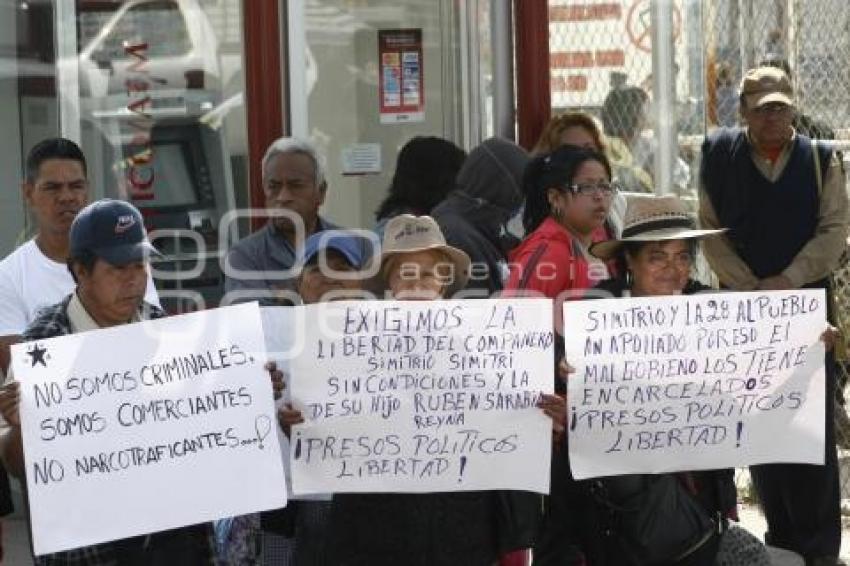 ★ NO SOMOS CRIMINALES.
SOMOS COMERCIANTES
NO NARCOTRAFICANTES...!
EXIGIMOS LA
LIBERTAD DEL COMPAN ERO
SIMITRIO SIMITRI
SIN CONDICIONES Y LA
DE SU HIJO RUBEN SARABIA
REYNA
¡PRESOS POLITICOS
LIBERTAD!
SIMITRIO Y LA 28 AL PUEBLO
AN APOLLADO POR ESO EL
MAL GOBIENO LOS TIENE
ENCARCELADOS
¡PRESOS POLITICOS
LIBERTAD!
agencia